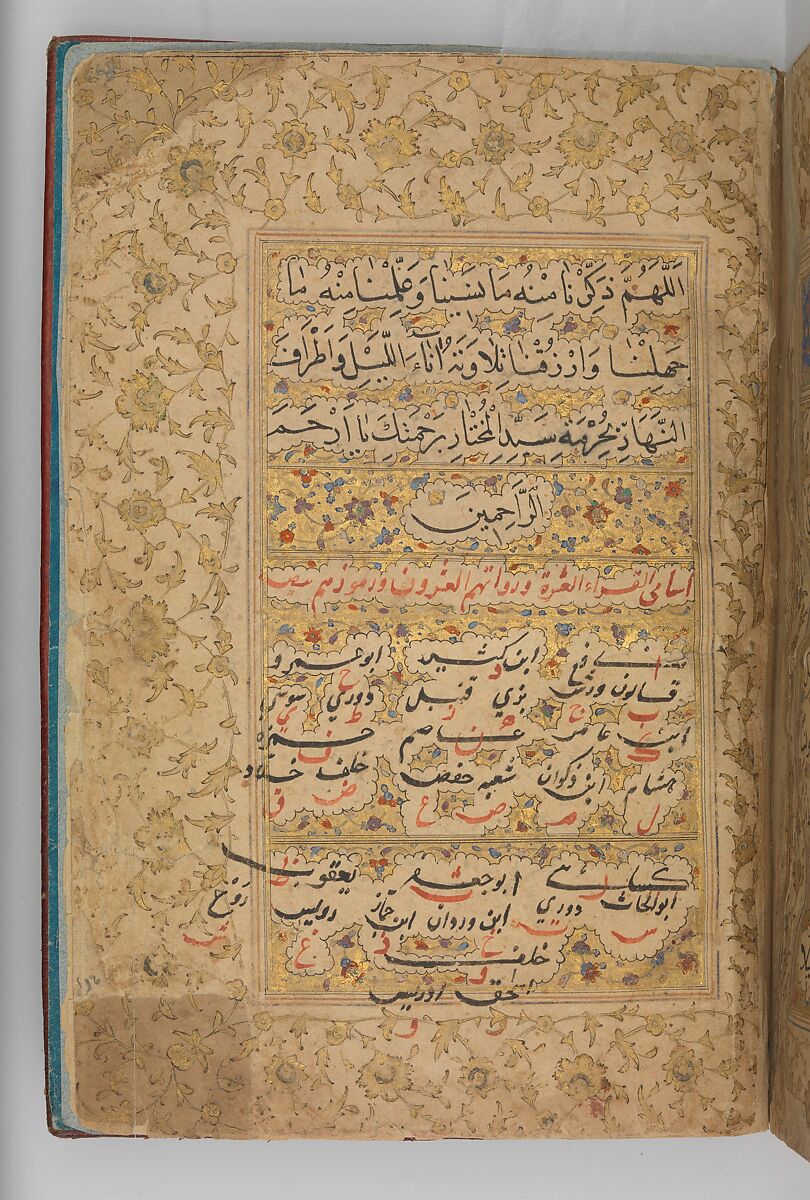 اَللّٰهُمَّ ذَكِّرْنَا مِنْهُ مَا نَسِينَا وَعَلِّمْنَا مِنْهُ مَا
جَهِلْنَا وَارْزُقْنَا تِلَاوَتَهُ اٰنَاۤءَ اللَّيْلِ وَاَطْرَافَ
النَّهَارِ بِحُرْمَةِ سَيِّدِ الْمُخْتَارِ بِرَحْمَتِكَ يَا اَرْحَمَ
الرَّاحِمِينَ
اسامى القراء العشرة ورواتهم العشرون ورموزهم
نافع ا ابن كثير د ابو عمرو ح
قالون ورش بزي قنبل دوري سوسي
ب ج ه ز ط ي
ابن عامر ك عاصم ن حمزه ف
هشام ابن ذكوان شعبه حفص خلف خلاد
ل م ص ع ض ق
كسائي ر ابو جعفر ث يعقوب ظ
ابوالحارث دوري ابن وردان ابن جماز رويس روح
س ت خ ذ غ ش
خلف
اسحق ادريس